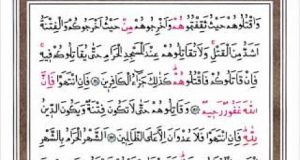 وَاقْتُلُوهُمْ حَيْثُ ثَقِفْتُمُوهُمْ وَأَخْرِجُوهُمْ مِنْ حَيْثُ أَخْرَجُوكُمْ وَالْفِتْنَةُ
أَشَدُّ مِنَ الْقَتْلِ وَلَا تُقَاتِلُوهُمْ عِنْدَ الْمَسْجِدِ الْحَرَامِ حَتَّى يُقَاتِلُوكُمْ فِيهِ
فَإِنْ قَاتَلُوكُمْ فَاقْتُلُوهُمْ كَذَلِكَ جَزَاءُ الْكَافِرِينَ فَإِنِ انْتَهَوْا فَإِنَّ
اللَّهَ غَفُورٌ رَحِيمٌ وَقَاتِلُوهُمْ حَتَّى لَا تَكُونَ فِتْنَةٌ وَيَكُونَ الدِّينُ
لِلَّهِ فَإِنِ انْتَهَوْا فَلَا عُدْوَانَ إِلَّا عَلَى الظَّالِمِينَ الشَّهْرُ الْحَرَامُ بِالشَّهْرِ